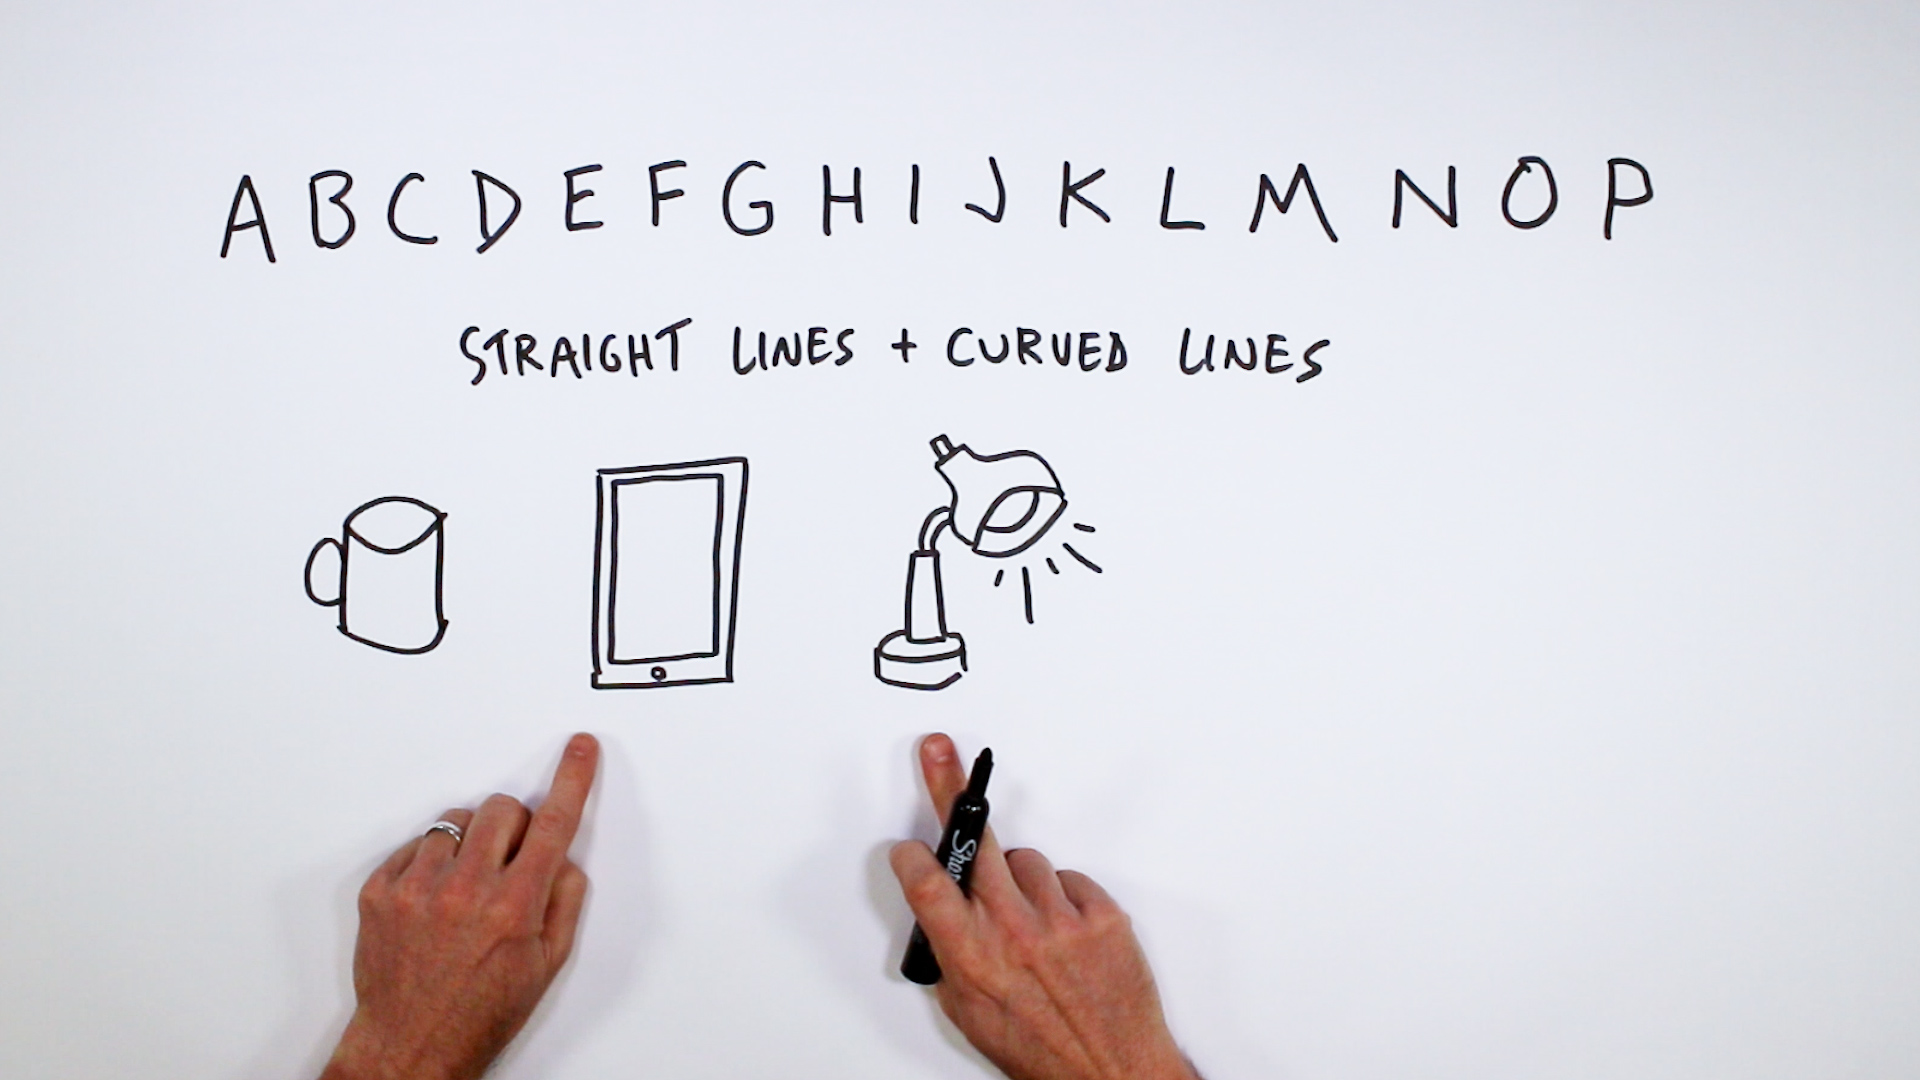 A B C D E F G H I J K L M N O P
STRAIGHT LINES + CURVED LINES